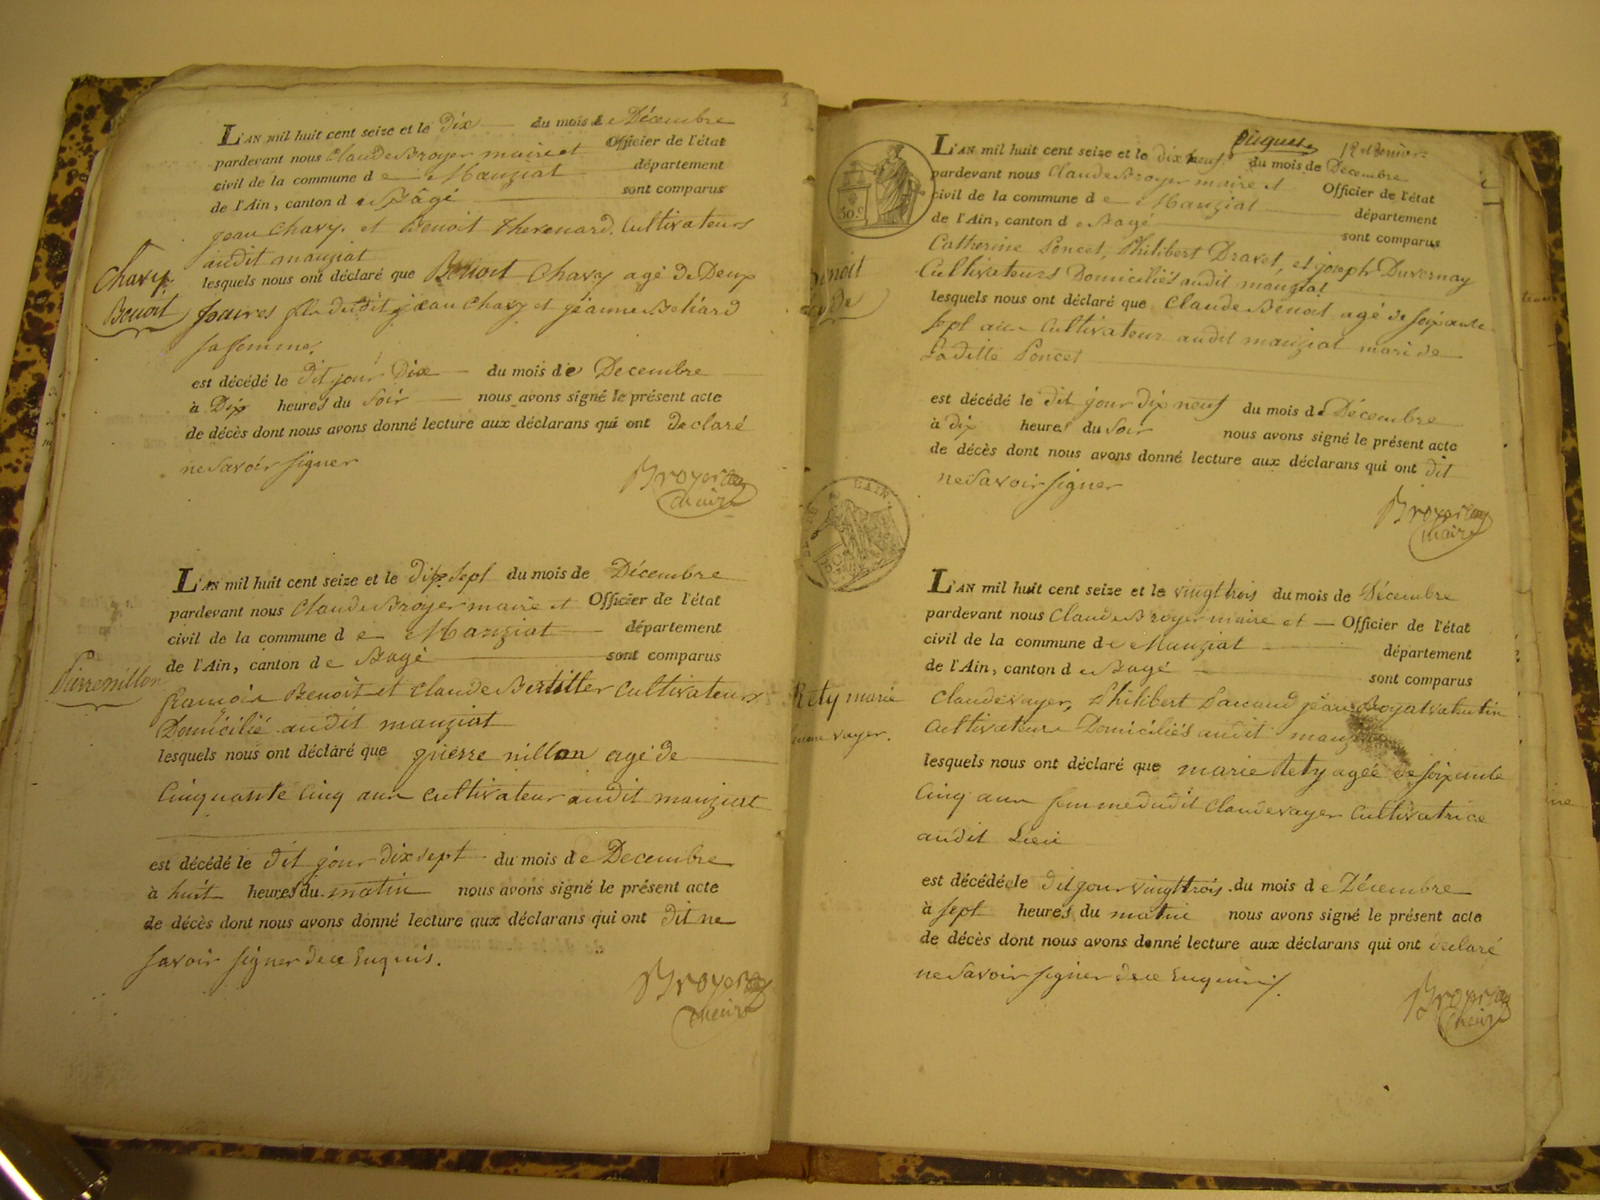 L'AN mil huit cent seize et le Dix du mois de Décembre
pardevant nous Claude Broyer maire et Officier de l'état
civil de la commune de Manziat département
de l'Ain, canton de Bâgé sont comparus
jean Chavy et Benoit Thevenard Cultivateurs
audit manziat
Chavy
Benoit
lesquels nous ont déclaré que Benoit Chavy agé de Deux
jean Chavy et jeanne
sa femme
est décédé le dit jour Dix du mois de Decembre
à Dix heures du Soir nous avons signé le présent acte
de décès dont nous avons donné lecture aux déclarans qui ont declaré
ne Savoir signer
Broyer
Maire
L'AN mil huit cent seize et le dix sept du mois de Décembre
pardevant nous Claude Broyer maire et Officier de l'état
civil de la commune de Manziat département
de l'Ain, canton de Bagé sont comparus
Pierre nillon
françois Benoit et Claude Cultivateurs
Domicilié audit manziat
lesquels nous ont déclaré que pierre nillon agé de
Cinquante Cinq ans cultivateur audit manziat
est décédé le dit jour dix sept du mois de Decembre
à huit heures du matin nous avons signé le présent acte
de décès dont nous avons donné lecture aux déclarans qui ont dit ne
savoir signer de ce Enquis.
Broyer
Maire
L'AN mil huit cent seize et le dix neuf du mois de Décembre
pardevant nous Claude Broyer maire et Officier de l'état
civil de la commune de Manziat département
de l'Ain, canton de Bagé sont comparus
Catherine Poncet, Philibert Dravet, et joseph Duvernay
Cultivateurs Domiciliés audit manziat
lesquels nous ont déclaré que Claude Benoit agé de soixante
sept ans Cultivateur audit manziat mari de
Laditte Poncet
est décédé le dit jour dix neuf du mois de Décembre
à dix heures du soir nous avons signé le présent acte
de décès dont nous avons donné lecture aux déclarans qui ont dit
ne Savoir signer
Broyer
Maire
L'AN mil huit cent seize et le vingt trois du mois de Décembre
pardevant nous Claude Broyer maire et Officier de l'état
civil de la commune de Manziat département
de l'Ain, canton de Bagé sont comparus
Rety marie
vayer.
Claude vayer, Philibert jean Boyat
Cultivateurs Domiciliés audit
lesquels nous ont déclaré que marie Rety agée de soixante
Cinq ans femme dudit Claude vayer Cultivatrice
audit Lieu
est décédée le dit jour vingt trois du mois de Décembre
à sept heures du matin nous avons signé le présent acte
de décès dont nous avons donné lecture aux déclarans qui ont declaré
ne Savoir signer de ce Enquis.
Broyer
Maire